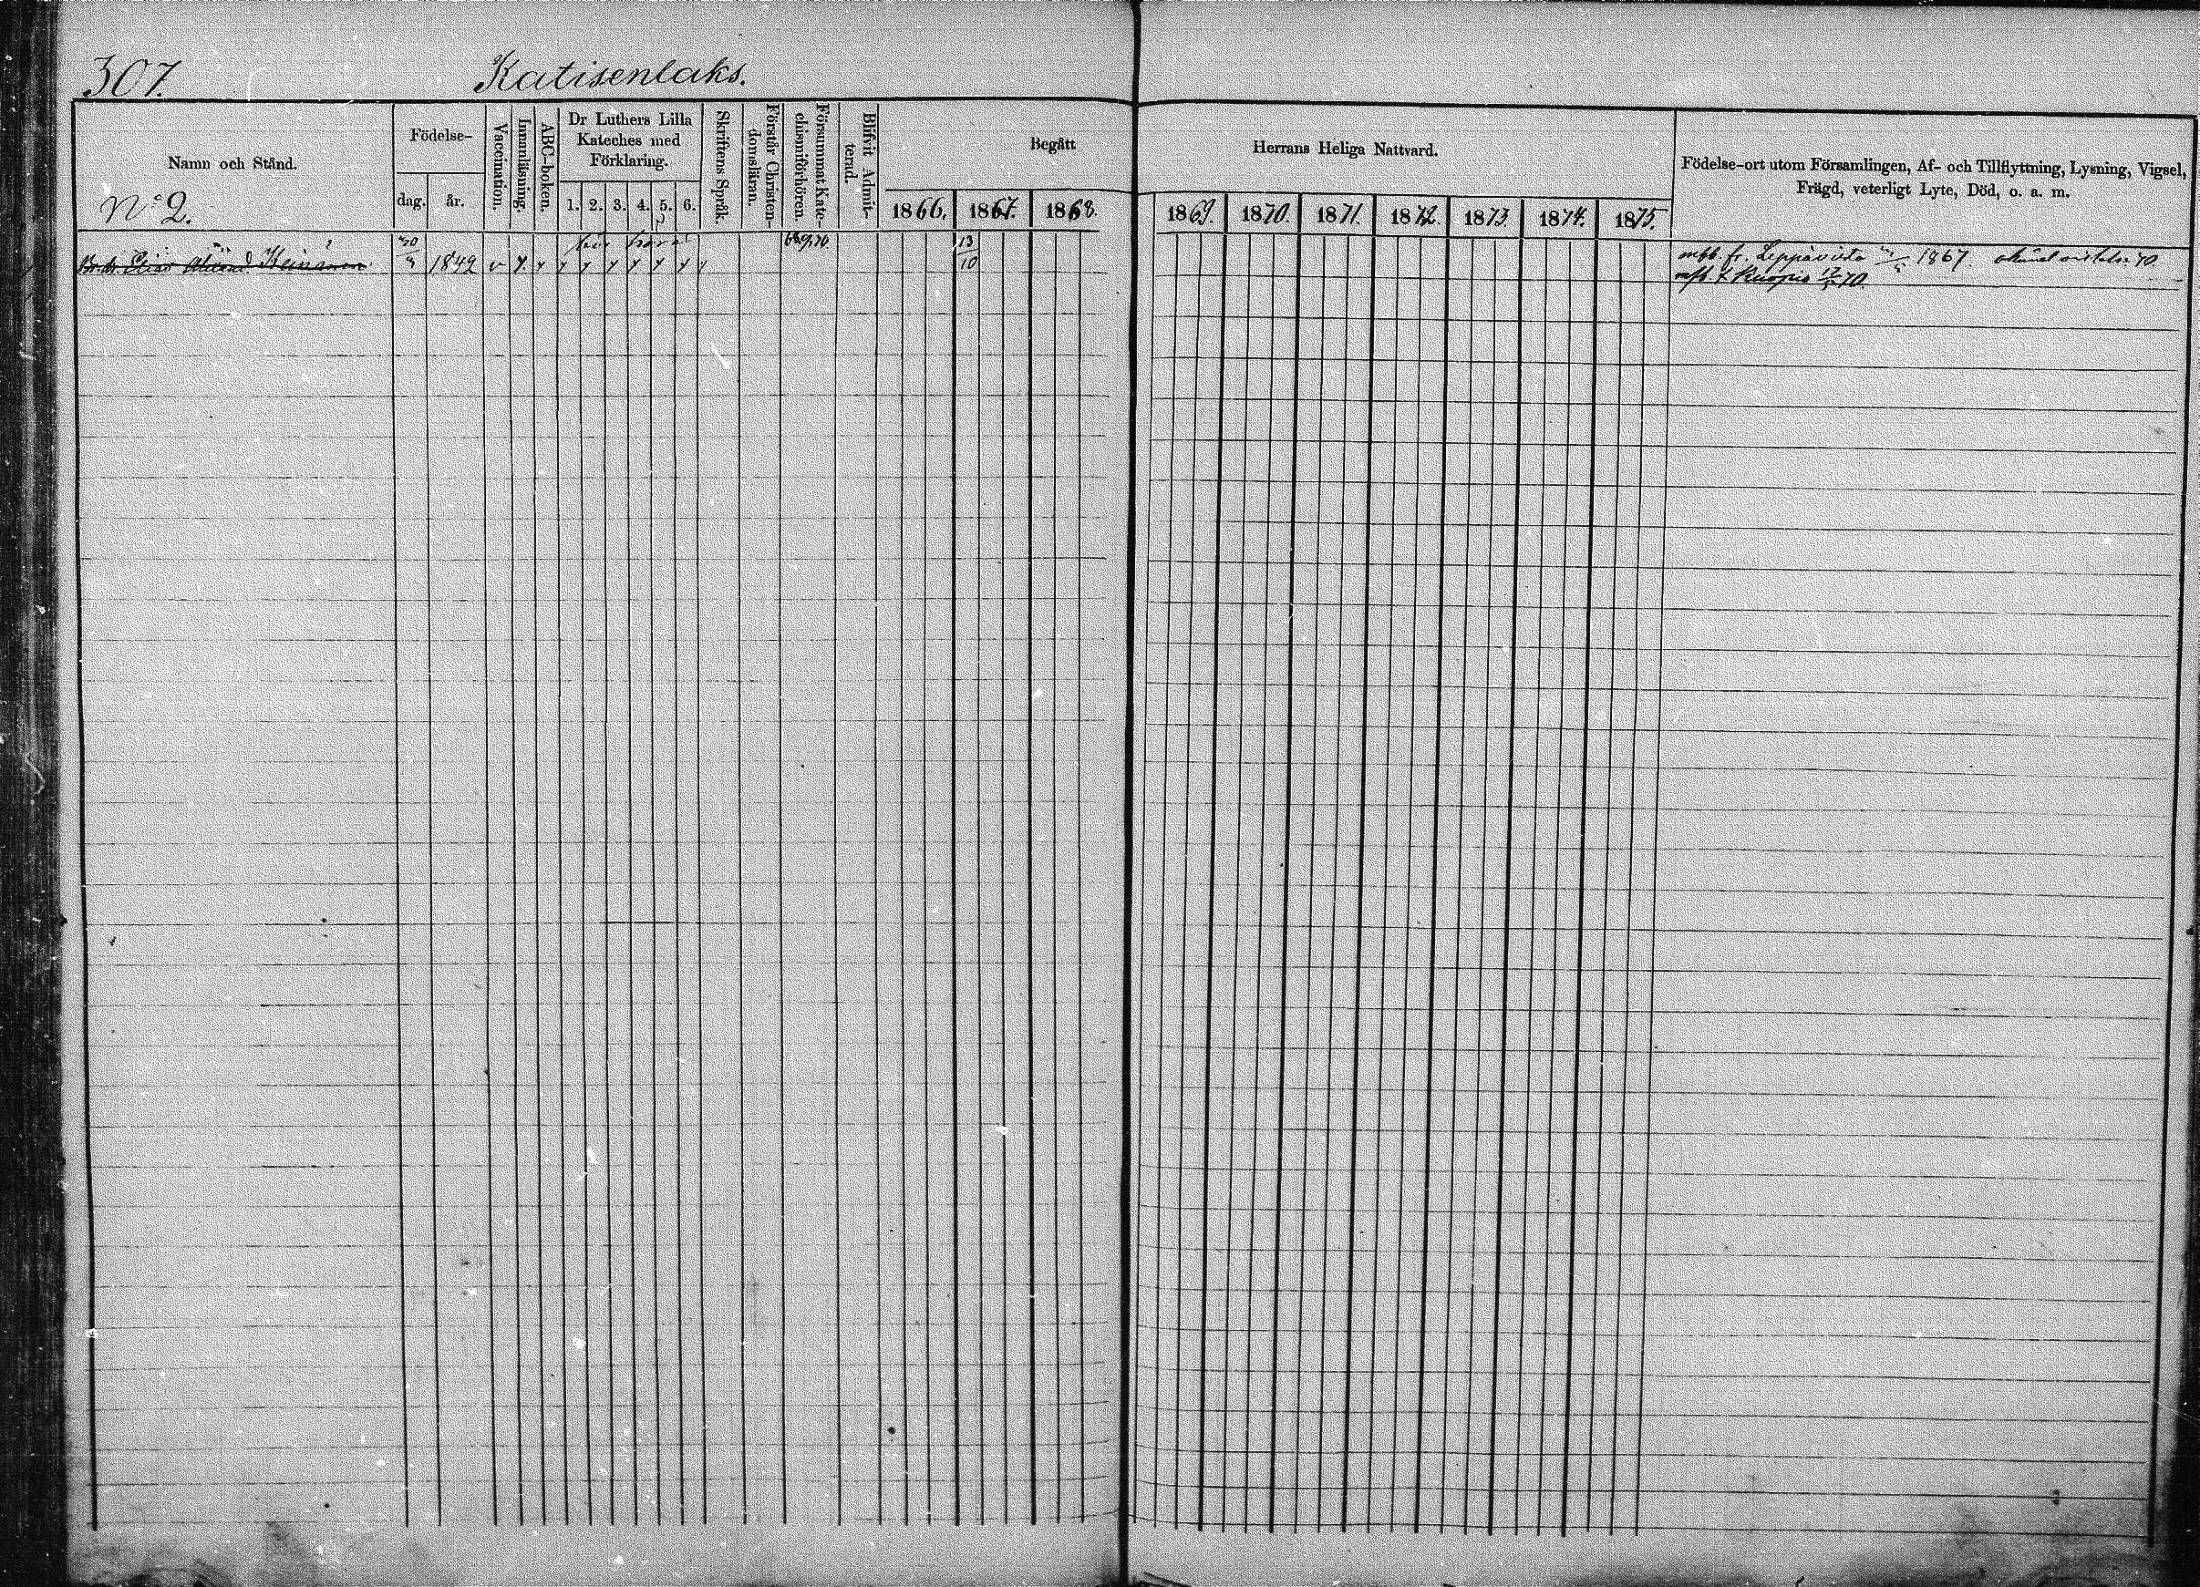 307.
Katisenlaks.
Namn och Stånd.
Födelse-
dag. år.
Vaccination.
Innanläsning.
ABC-boken.
Dr Luthers Lilla
Kateches med
Förklaring.
1. 2. 3. 4. 5. 6.
Skriftens Språk.
Förstår Christen-
domsläran.
Försummat Kate-
chismiförhören.
Blifvit Admit-
terad.
Begått
1866. 1867. 1868.
Herrans Heliga Nattvard.
1869. 1870. 1871. 1872. 1873. 1874. 1875.
Födelse-ort utom Församlingen, Af- och Tillflyttning, Lysning, Vigsel,
Frägd, veterligt Lyte, Död, o. a. m.
No 2.
Elias 1849 v 13/10
mfb. fr. Leppävirta 1867
mfb t Kuopio 70.